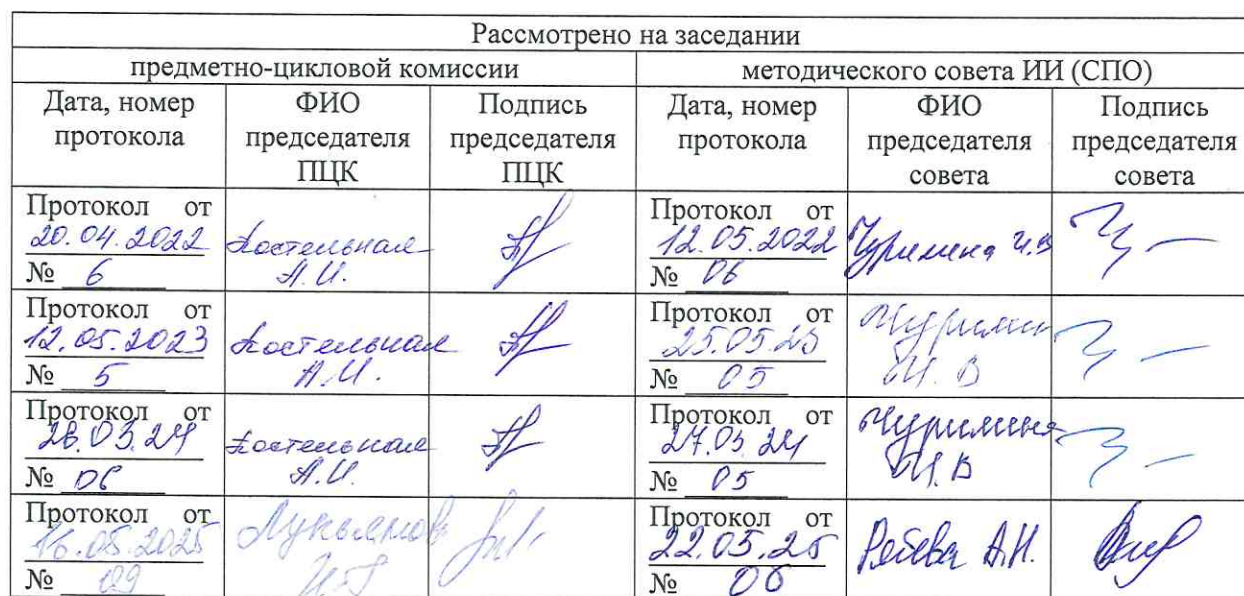 Рассмотрено на заседании
предметно-цикловой комиссии
методического совета ИИ (СПО)
Дата, номер
протокола
ФИО
председателя
ПЦК
Подпись
председателя
ПЦК
Дата, номер
протокола
ФИО
председателя
совета
Подпись
председателя
совета
Протокол от
20.04.2022
№ 6
Костельная
А.И.
Протокол от
12.05.2022
№ 06
Чуримина И.В
Протокол от
12.05.2023
№ 5
Костельная
А.И.
Протокол от
25.05.23
№ 05
И.В
Протокол от
24
№ 06
Костельная
А.И.
Протокол от
24
№ 05
Чуримина
И.В
Протокол от
16.05.2025
№ 09
Протокол от
22.05.25
№ 06
А.Н.